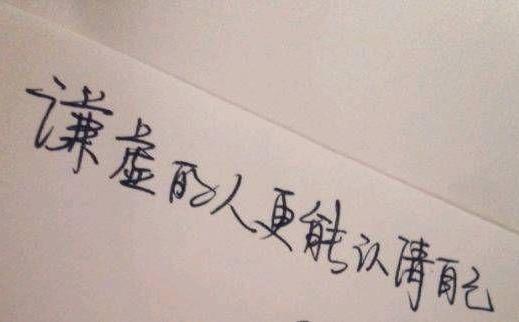 谦虚的人更能认清自己